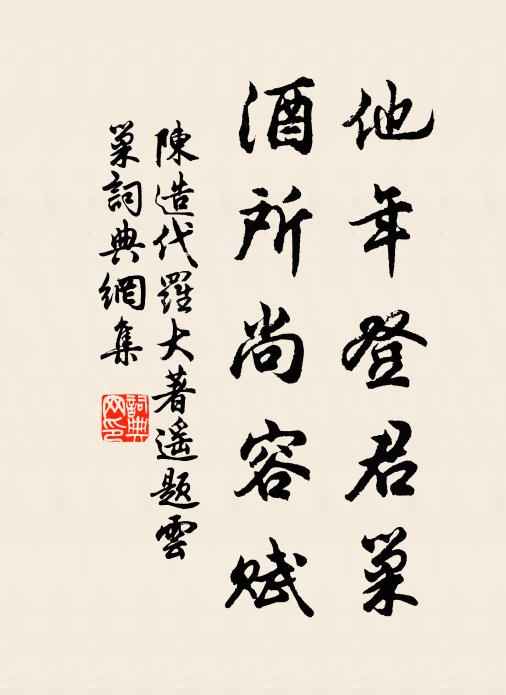 他年登君巢
酒所尚容赋
陳造代羅大著遥题雲
巢詞典網集
詞典网印